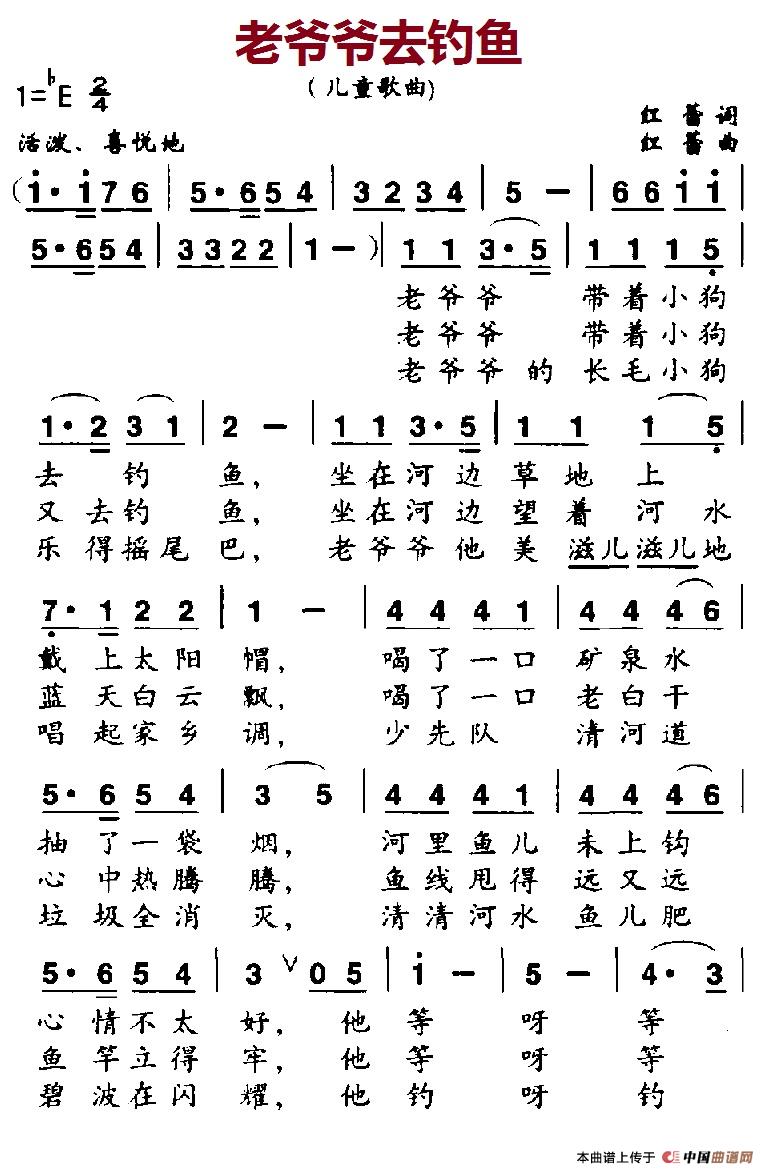 老爷爷去钓鱼
(儿童歌曲)
1=♭E 2/4
红蕾词
活泼、喜悦地
红蕾曲
(i· i 7 6 | 5· 6 5 4 | 3 2 3 4 | 5 — | 6 6 i i |
5· 6 5 4 | 3 3 2 2 | 1 — ) | 1 1 3· 5 | 1 1 1 5 |
老爷爷 带着小狗
老爷爷 带着小狗
老爷爷的长毛小狗
1· 2 3 1 | 2 — | 1 1 3· 5 | 1 1 1 5 |
去钓鱼, 坐在河边草地上
又去钓鱼, 坐在河边望着河水
乐得摇尾巴, 老爷爷他美滋儿滋儿地
7· 1 2 2 | 1 — | 4 4 4 1 | 4 4 4 6 |
戴上太阳帽, 喝了一口矿泉水
蓝天白云飘, 喝了一口老白干
唱起家乡调, 少先队 清河道
5· 6 5 4 | 3 5 | 4 4 4 1 | 4 4 4 6 |
抽了一袋烟, 河里鱼儿未上钩
心中热腾腾, 鱼线甩得远又远
垃圾全消灭, 清清河水鱼儿肥
5· 6 5 4 | 3 ∨ 0 5 | i — | 5 — | 4· 3 |
心情不太好, 他等呀等
鱼竿立得牢, 他等呀等
碧波在闪耀, 他钓呀钓
本曲谱上传于 中国曲谱网